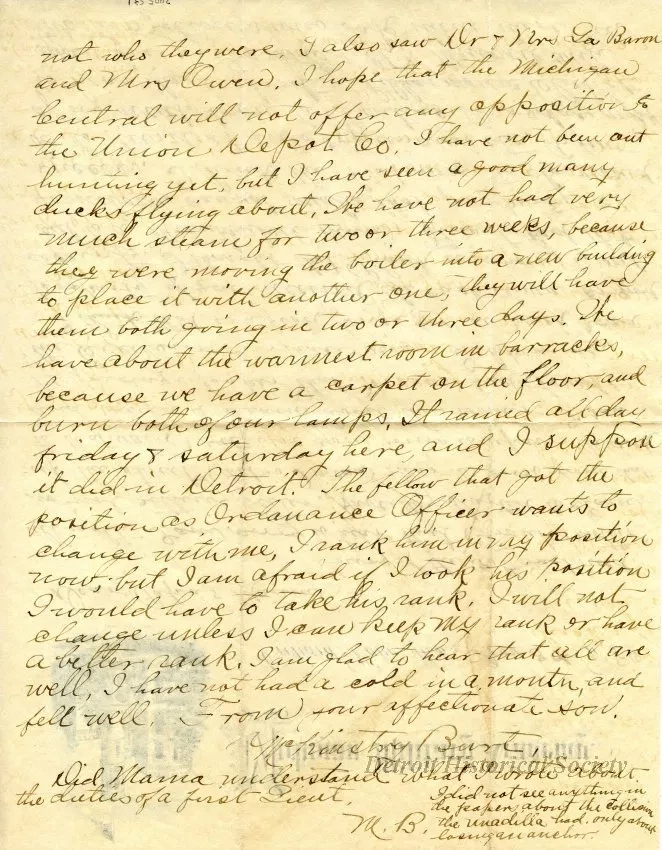 not who they were. I also saw Dr & Mrs La Baron
and Mrs Owen. I hope that the Michigan
Central will not offer any opposition to
the Union Depot Co. I have not been out
hunting yet, but I have seen a good many
ducks flying about. We have not had very
much steam for two or three weeks, because
they were moving the boiler into a new building
to place it with another one, they will have
them both going in two or three days. We
have about the warmest room in barracks,
because we have a carpet on the floor, and
burn both of our lamps. It rained all day
friday & saturday here, and I suppose
it did in Detroit. The fellow that got the
position as Ordanance Officer wants to
change with me, I rank him in my position
now, but I am afraid if I took his position
I would have to take his rank. I will not
change unless I can keep my rank or have
a better rank. I am glad to hear that all are
well, I have not had a cold in a month, and
fell well. From your affectionate son.
Burt
Detroit Historical Society
Did Mama understand what I wrote about
the duties of a first Lieut.
I did not see anything in
the paper about the collision
M. B. the unadilla had. only about
losing an anchor.